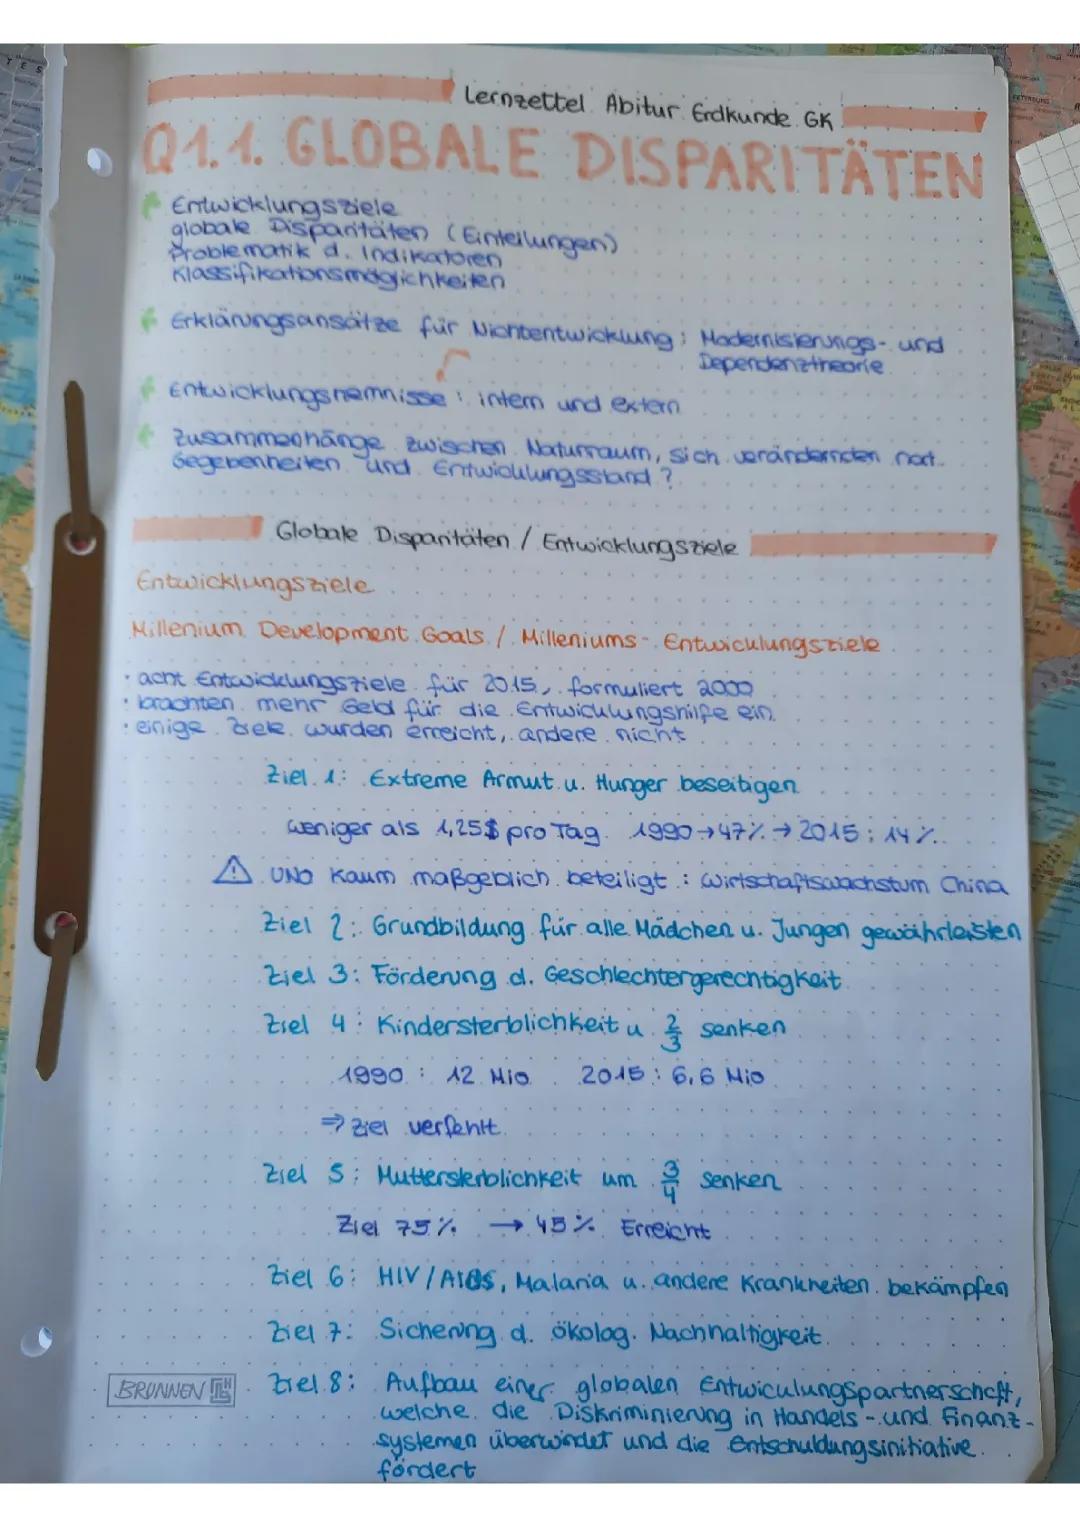 Lernzettel Abitur Erdkunde GK
Q1.1. GLOBALE DISPARITÄTEN
Entwicklungsziele
globale Disparitäten (Einteilungen)
Problematik d. Indikatoren
Klassifikationsmöglichkeiten
Erklärungsansätze für Nichtentwicklung: Modernisierungs- und
Dependenztheorie
Entwicklungshemnisse: intern und extern
Zusammenhänge zwischen Naturraum, sich verändernden nat.
Gegebenheiten und Entwicklungsstand?
Globale Disparitäten / Entwicklungsziele
Entwicklungsziele
Millenium Development Goals / Milleniums-Entwicklungsziele
· acht Entwicklungsziele für 2015, formuliert 2000
· brachten mehr Geld für die Entwicklungshilfe ein
· einige Ziele wurden erreicht, andere nicht
Ziel 1: Extreme Armut u. Hunger beseitigen
weniger als 1,25$ pro Tag 1990→47%→2015: 14%
⚠ UNO kaum maßgeblich beteiligt: Wirtschaftswachstum China
Ziel 2: Grundbildung für alle Mädchen u. Jungen gewährleisten
Ziel 3: Förderung d. Geschlechtergerechtigkeit
Ziel 4: Kindersterblichkeit u 2/3 senken
1990: 12 Mio 2015: 6,6 Mio
⇒ Ziel verfehlt
Ziel 5: Muttersterblichkeit um 3/4 senken
Ziel 75% → 45% Erreicht
Ziel 6: HIV/AIDS, Malaria u. andere Krankheiten bekämpfen
Ziel 7: Sicherung d. ökolog. Nachhaltigkeit
Ziel 8: Aufbau einer globalen Entwicklungspartnerschaft,
welche die Diskriminierung in Handels- und Finanz-
systemen überwindet und die Entschuldungsinitiative
fördert
BRUNNEN